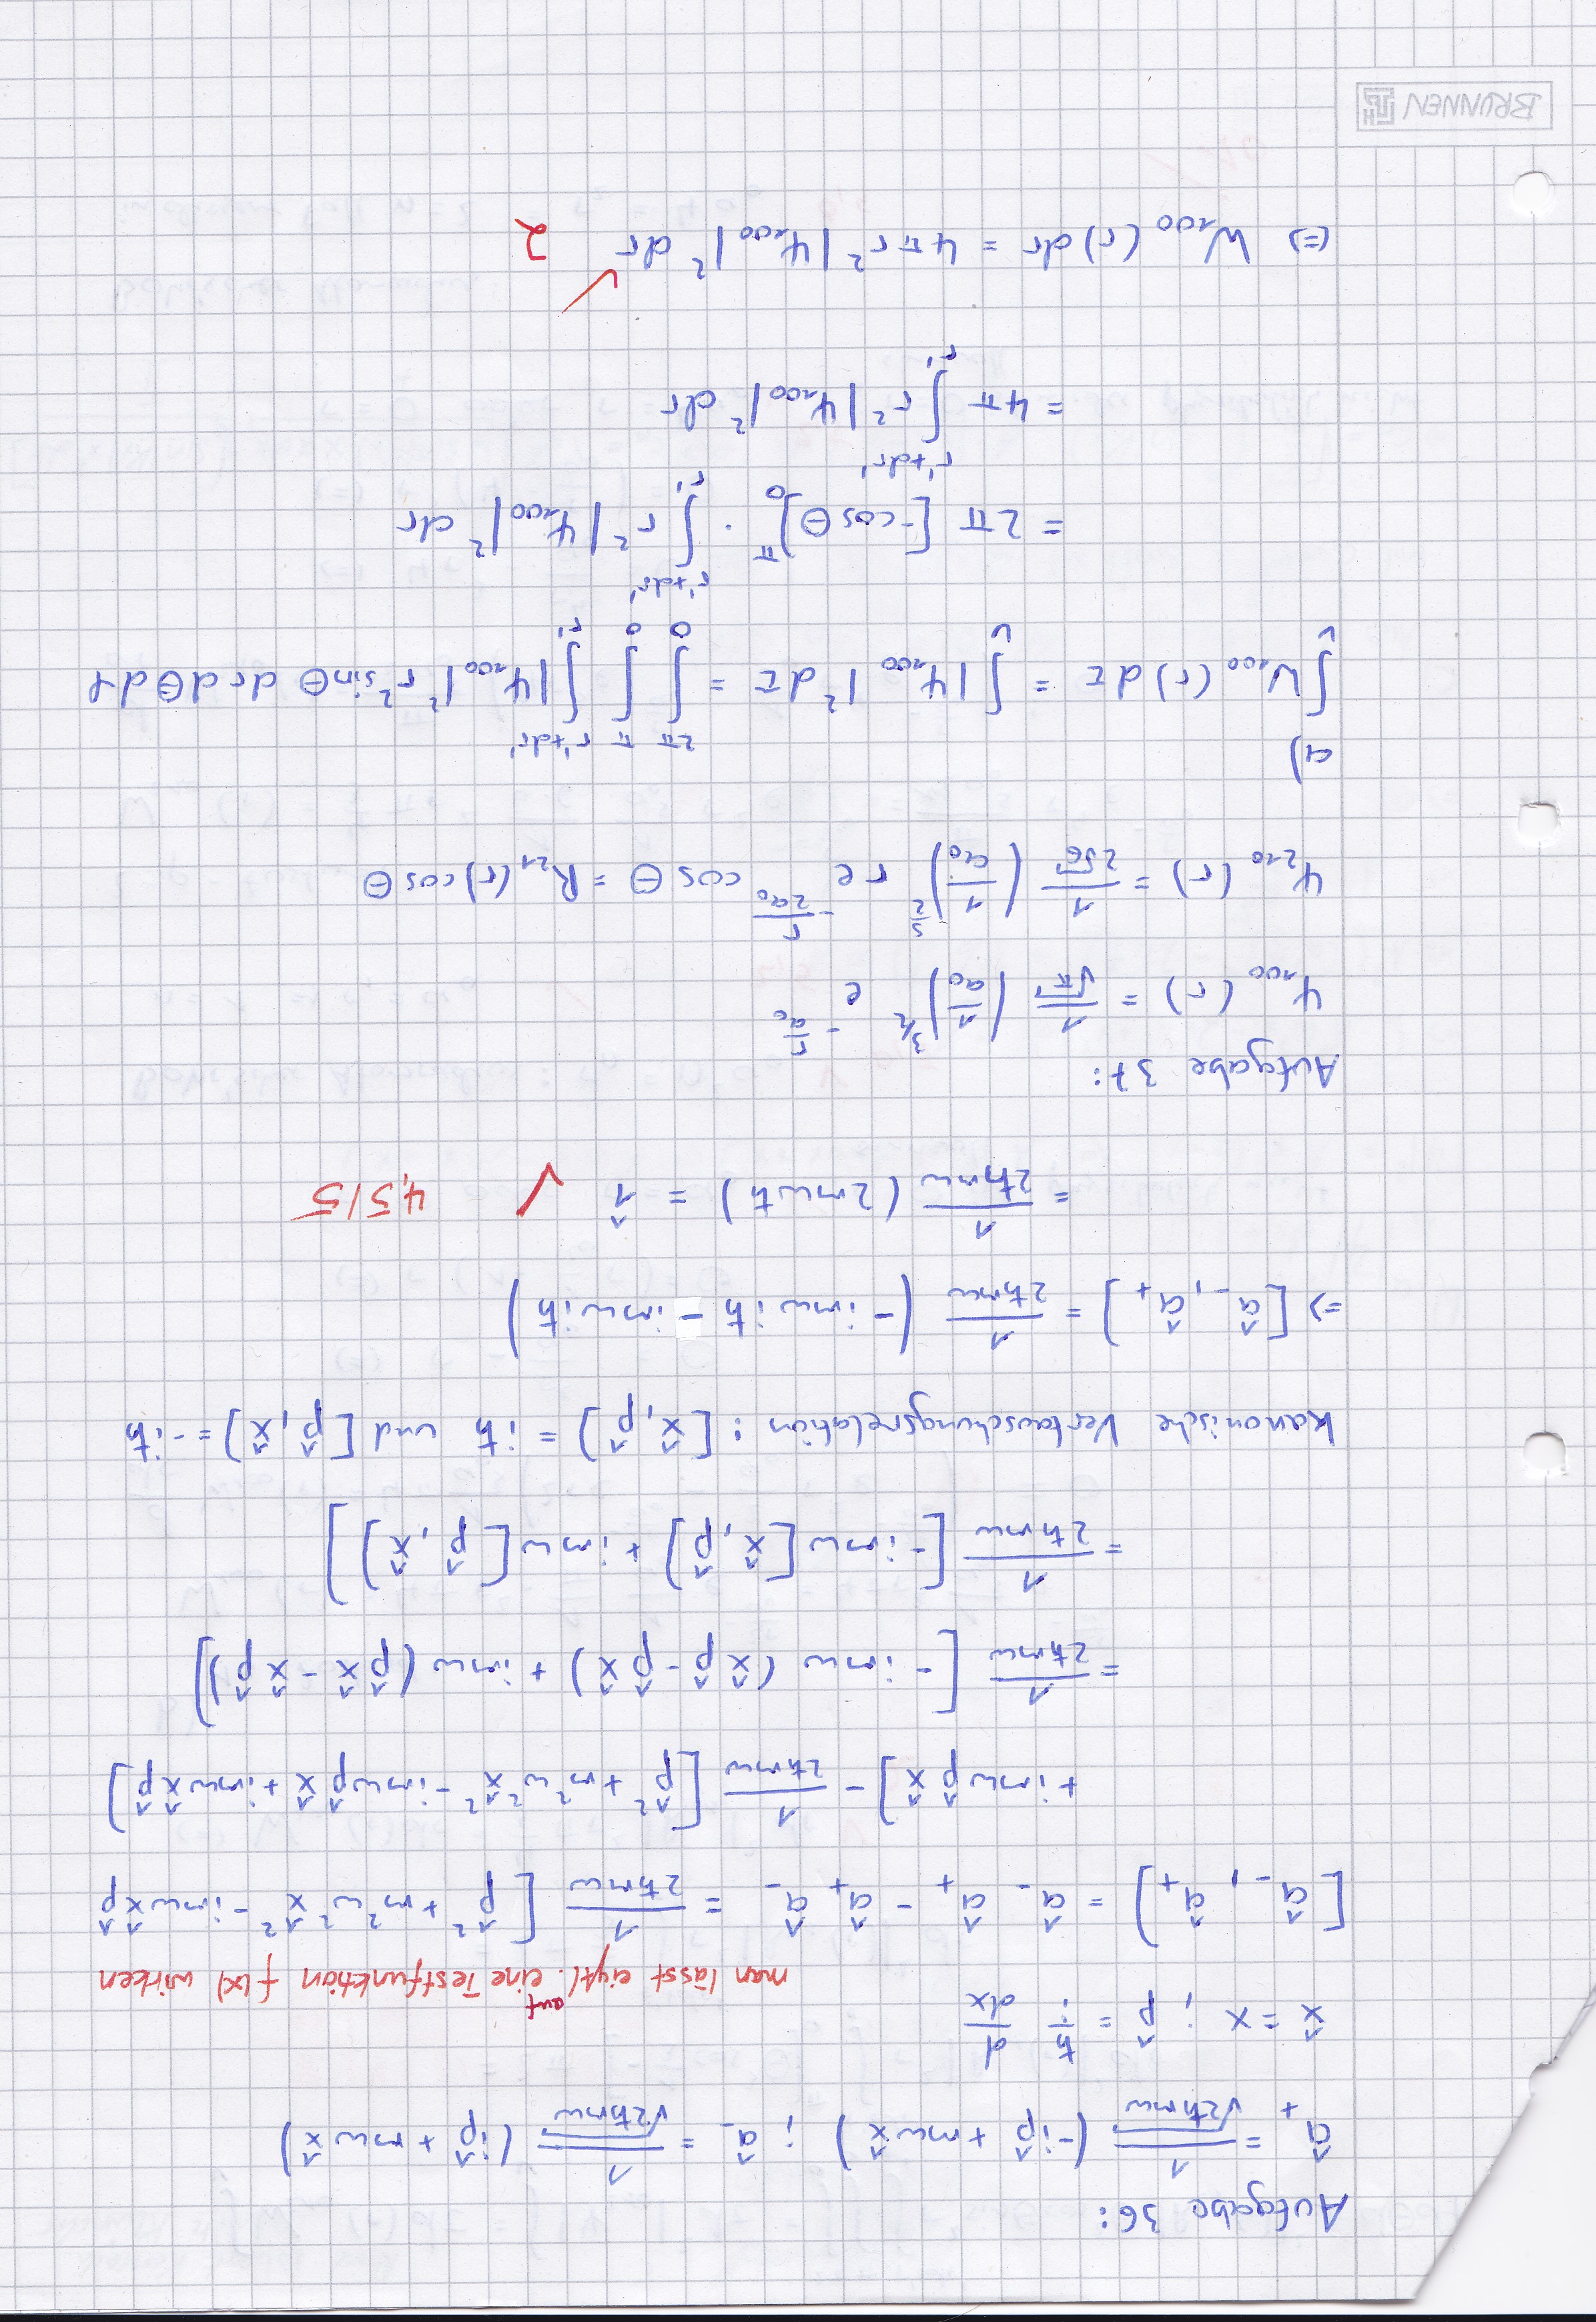 Aufgabe 36:
â₊ = 1/√(2ħmω) (-ip̂ + mω x̂) ; â₋ = 1/√(2ħmω) (ip̂ + mω x̂)
x̂ = x ; p̂ = ħ/i d/dx
man lässt eigtl. auf eine Testfunktion f(x) wirken
[â₋, â₊] = â₋ â₊ - â₊ â₋ = 1/(2ħmω) [p̂² + m²ω² x̂² - imω x̂p̂
+ imω p̂ x̂] - 1/(2ħmω) [p̂² + m²ω² x̂² - imω p̂ x̂ + imω x̂ p̂]
= 1/(2ħmω) [-imω (x̂ p̂ - p̂ x̂) + imω (p̂ x̂ - x̂ p̂)]
= 1/(2ħmω) [-imω [x̂, p̂] + imω [p̂, x̂]]
kanonische Vertauschungsrelation : [x̂, p̂] = iħ und [p̂, x̂] = -iħ
=> [â₋, â₊] = 1/(2ħmω) (-imω iħ - imω iħ)
= 1/(2ħmω) (2mωħ) = 1̂ ✓ 4,5/5
Aufgabe 37:
Ψ₁₀₀ (r) = 1/√π (1/a₀)^(3/2) e^(-r/a₀)
Ψ₂₁₀ (r) = 1/(2√6) (1/a₀)^(5/2) r e^(-r/(2a₀)) cos Θ = R₂₁(r) cos Θ
a)
∫_V W₁₀₀ (r) dτ = ∫_V |Ψ₁₀₀|² dτ = ∫_0^(2π) ∫_0^π ∫_(r')^(r'+dr') |Ψ₁₀₀|² r² sin Θ dr dΘ dφ
= 2π [-cos Θ]_0^π · ∫_(r')^(r'+dr') r² |Ψ₁₀₀|² dr
= 4π ∫_(r')^(r'+dr') r² |Ψ₁₀₀|² dr
(=) W₁₀₀ (r) dr = 4π r² |Ψ₁₀₀|² dr ✓ 2
BRUNNEN